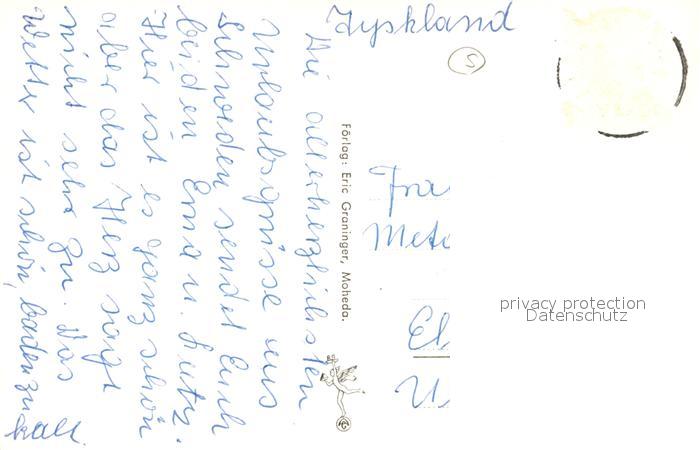 Die allerherzlichsten
Urlaubsgrüsse aus
Schweden sendet Euch
beiden Erna u. Lutz.
Hier ist es ganz schön
aber das Herz sagt
nicht sehr zu. Das
Wetter ist schön, baden zu
kalt.
Förlag: Eric Graninger, Moheda.
Tyskland
S
Fra
Mete
El
U
privacy protection
Datenschutz